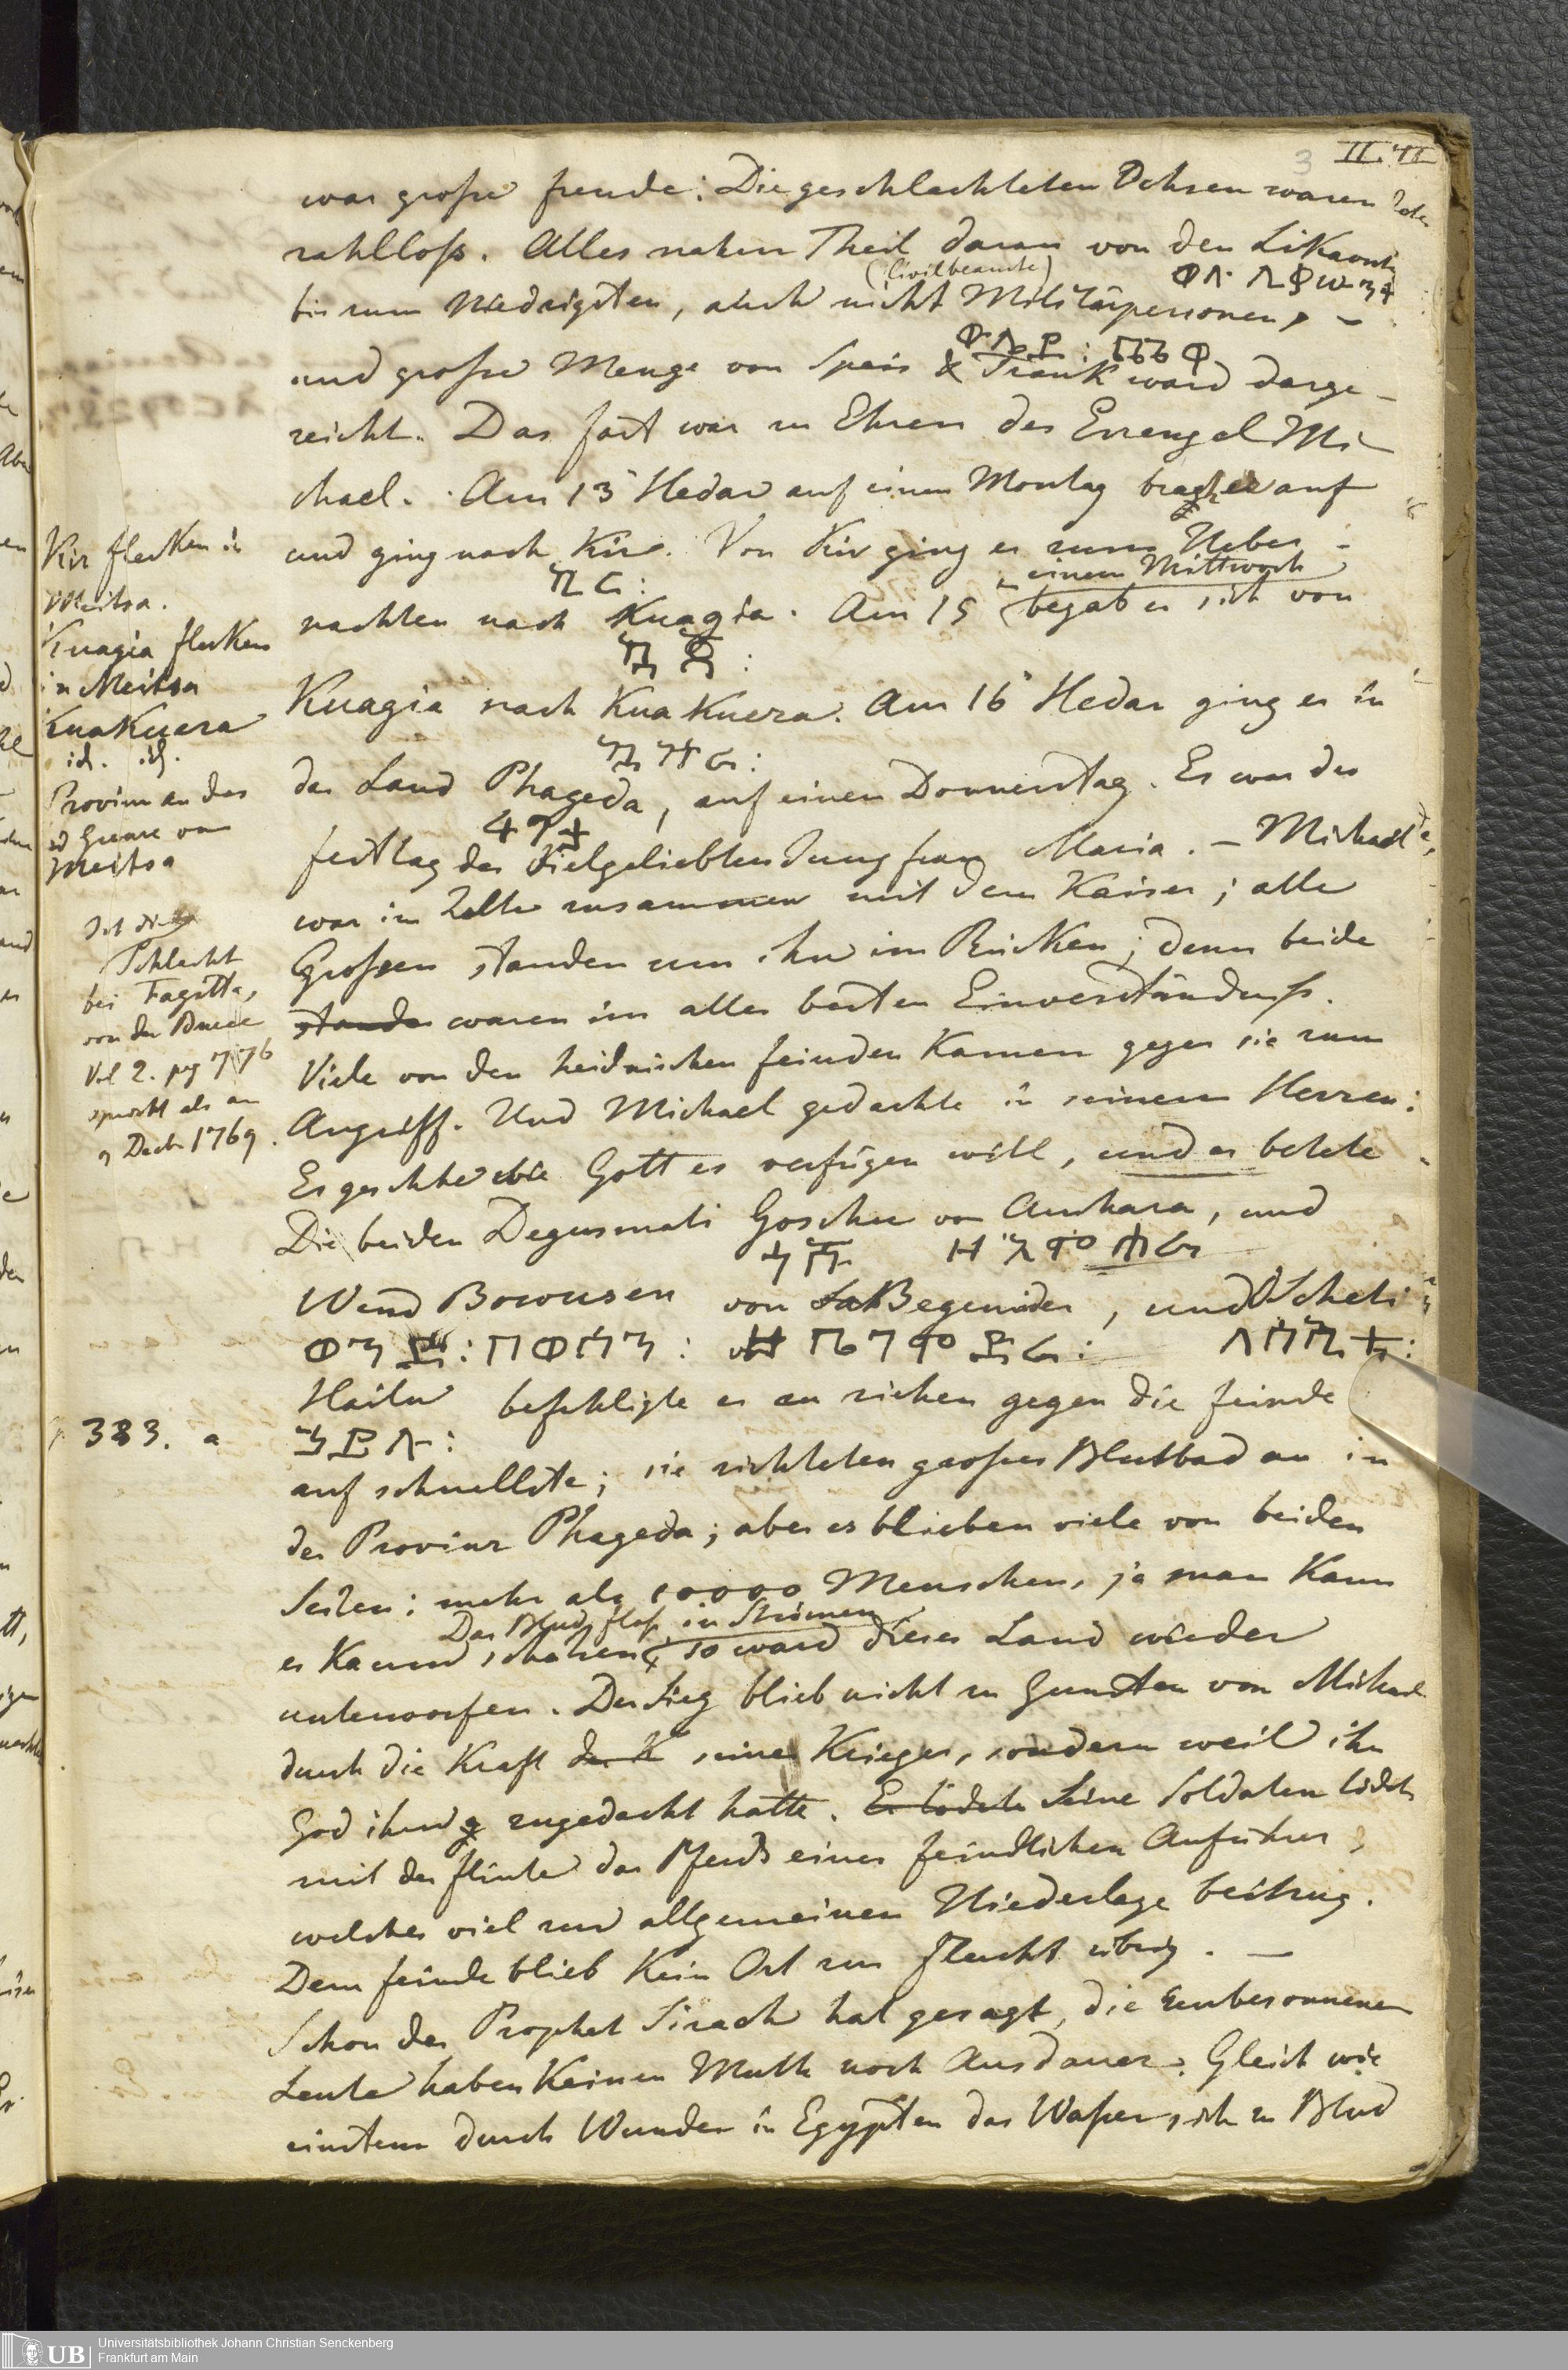 II. 41
3
war große Freude: Die geschlachteten Ochsen waren
zahlloß. Alles nahm Theil daran von den Likaonti
(Civilbeamte)
bis zum Niedrigsten, auch nicht Militärpersonen, –
und große Menge von Speis & Trank ward darge-
reicht. Das fest war zu Ehren des Erzengel Mi-
chael. Am 13 Hedar auf einen Montag brach er auf
und ging nach Kir. Von Kir ging er zum Ueber-
ኪር:
einem Mittwoch
nachten nach Kuagia. Am 15 begab er sich von
Kuagia nach KuaKuera. Am 16 Hedar ging er in
das Land Phageda, auf einen Donnerstag. Es war der
festtag der Vielgeliebten Jungfrau Maria. – Michael
war im Zelte zusammen mit dem Kaiser; alle
Großen standen um ihn im Rücken; denn beide
stande waren im aller besten Einverständniß.
Viele von den heidnischen feinden Kamen gegen sie zum
Angriff. Und Michael gedachte in seinem Herzen:
Es geschehe wie Gott es verfügen will, und er betete
Die beiden Degusmati Goschu von Amhara, und
ጎሹ ዘአምሐራ
Wend Bowusen von Begemider, und Scheti
ወንድ: በወሰን: ዘ ቤጌምድር:
Hailu befehligte er an ziehen gegen die feinde
ኃይሉ:
auf schnellste; sie richteten großes Blutbad an in
der Provinz Phageda; aber es blieben viele von beiden
Seiten: mehr als 10000 Menschen, ja man Kann
Das Blud floß in Strömen
es Kaum schätzen, so ward dieses Land wieder
unterworfen. Der Sieg blieb nicht zu Gunsten von Michael
durch die Kraft der K seiner Krieger, sondern weil ihn
God ihm zugedacht hatte. Er tödete Seine Soldaten
mit der flinte das Pferd eines feindlichen Anführer,
welches viel zur allgemeinen Niederlage beitrug.
Dem feinde blieb Kein Ort zur flucht übrig. –
Schon der Prophet Sirach hat gesagt, die unbesonnenen
Leute haben Keinen Muth noch Ausdauer. Gleich wie
einstens durch Wunder in Egypten das Waßer sich in Blud
Kir flecken in
Meitsa.
Kuagia flecken
in Meitsa
KuaKuera
id. id.
Provinz an der
Grenze von
Meitsa
Ist die
Schlacht
bei Fagitta,
von der Bruce
Vol 2. pag 776
spricht als am
9 Decb 1769.
383. a
UB
Universitätsbibliothek Johann Christian Senckenberg
Frankfurt am Main